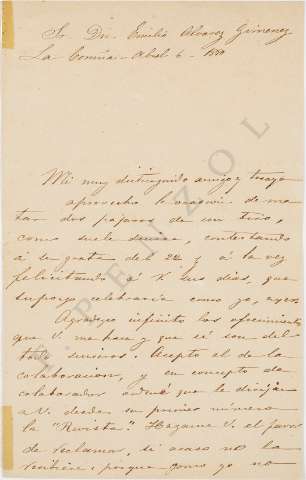 Sr. Dn. Emilio Alvarez Gimenez
La Coruña - Abril 6 - 1880
Mi muy distinguido amigo: traigo
aprovecho la ocasion de ma-
tar dos pajaros de un tiro,
como suele decirse, contestando
á su grata del 22 y á la vez
felicitando á V. sus dias, que
supongo celebraria como yo, ayer.
Agradezco infinito los ofrecimientos
que V. me hace y que sé son del
todo sinceros. Acepto el de la
colaboracion, y en concepto de
colaborador ordené que le dirijan
a V. desde su primer número
la "Revista". Hagame V. el favor
de reclamar, si acaso no la
recibiere; porque como yo no
PENZOL